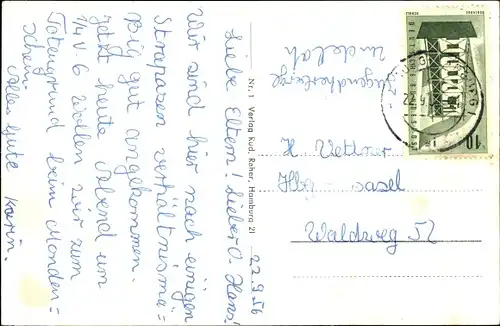 22.9.56
Liebe Eltern! Lieber O. Hans!
Wir sind hier nach einigen
Strapazen verhältnismä=
ßig gut angekommen.
Jetzt heute Abend um
1/4 V 6 wollen wir zum
Totengrund beim Monden=
schein.
Alles Gute
Karin.
Nr. 1 Verlag Rud. Reher, Hamburg 21
Jugendherberge
Undeloh
K Vettner
Hbg - Sasel
Waldweg 52
10